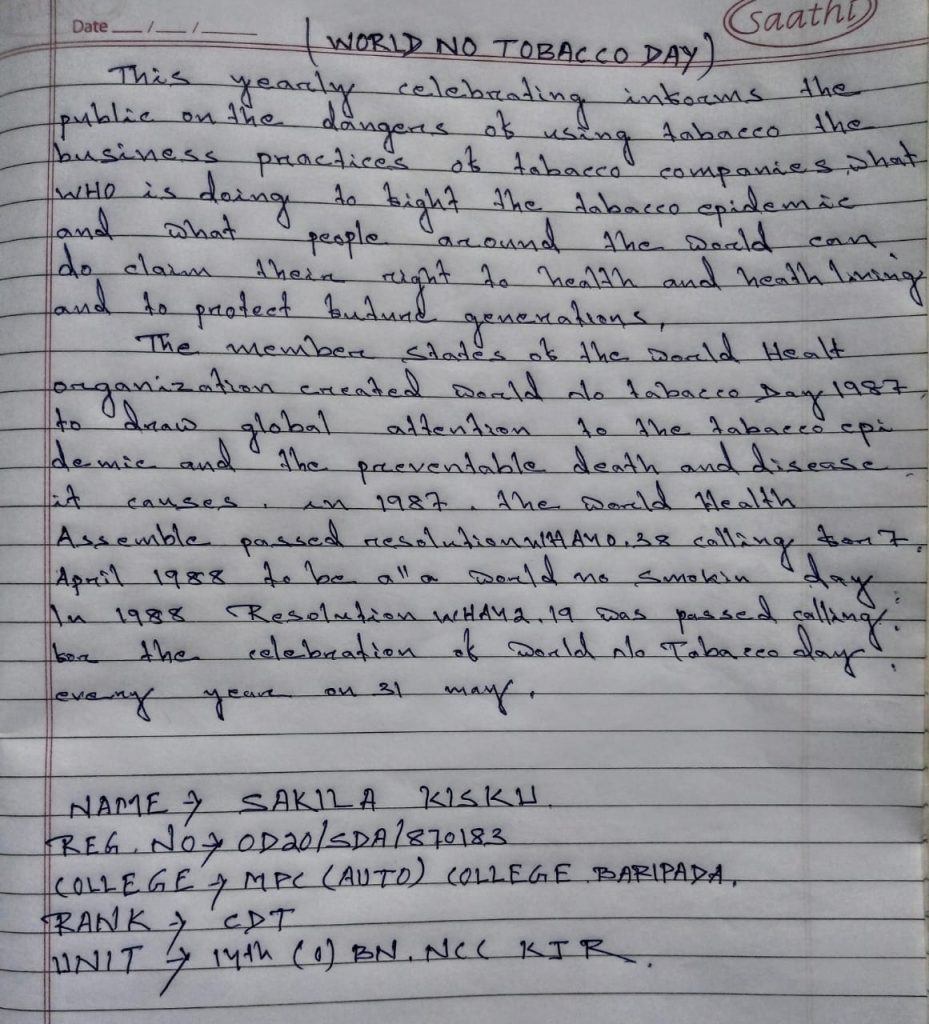 Date __/__/____
saathi
(WORLD NO TOBACCO DAY)
This yearly celebrating informs the
public on the dangers of using tabacco the
business practices of tobacco companies, what
WHO is doing to fight the tabacco epidemic
and what people around the world can
do claim their right to health and heath living
and to protect future generations,
The member states of the world Healt
organization created world No tabacco Day 1987
to draw global attention to the tabacco epi
demic and the preventable death and disease
it causes. in 1987. the world Health
Assemble passed resolution WHA40.38 calling for 7
April 1988 to be a" a world no smokin day
In 1988 Resolution WHA42.19 was passed calling
for the celebration of world No Tobacco day
every year on 31 may.
NAME → SAKILA KISKU.
REG. NO → OD20/SDA/870183
COLLEGE → MPC (AUTO) COLLEGE BARIPADA.
RANK → CDT
UNIT → 14th (O) BN. NCC KJR.